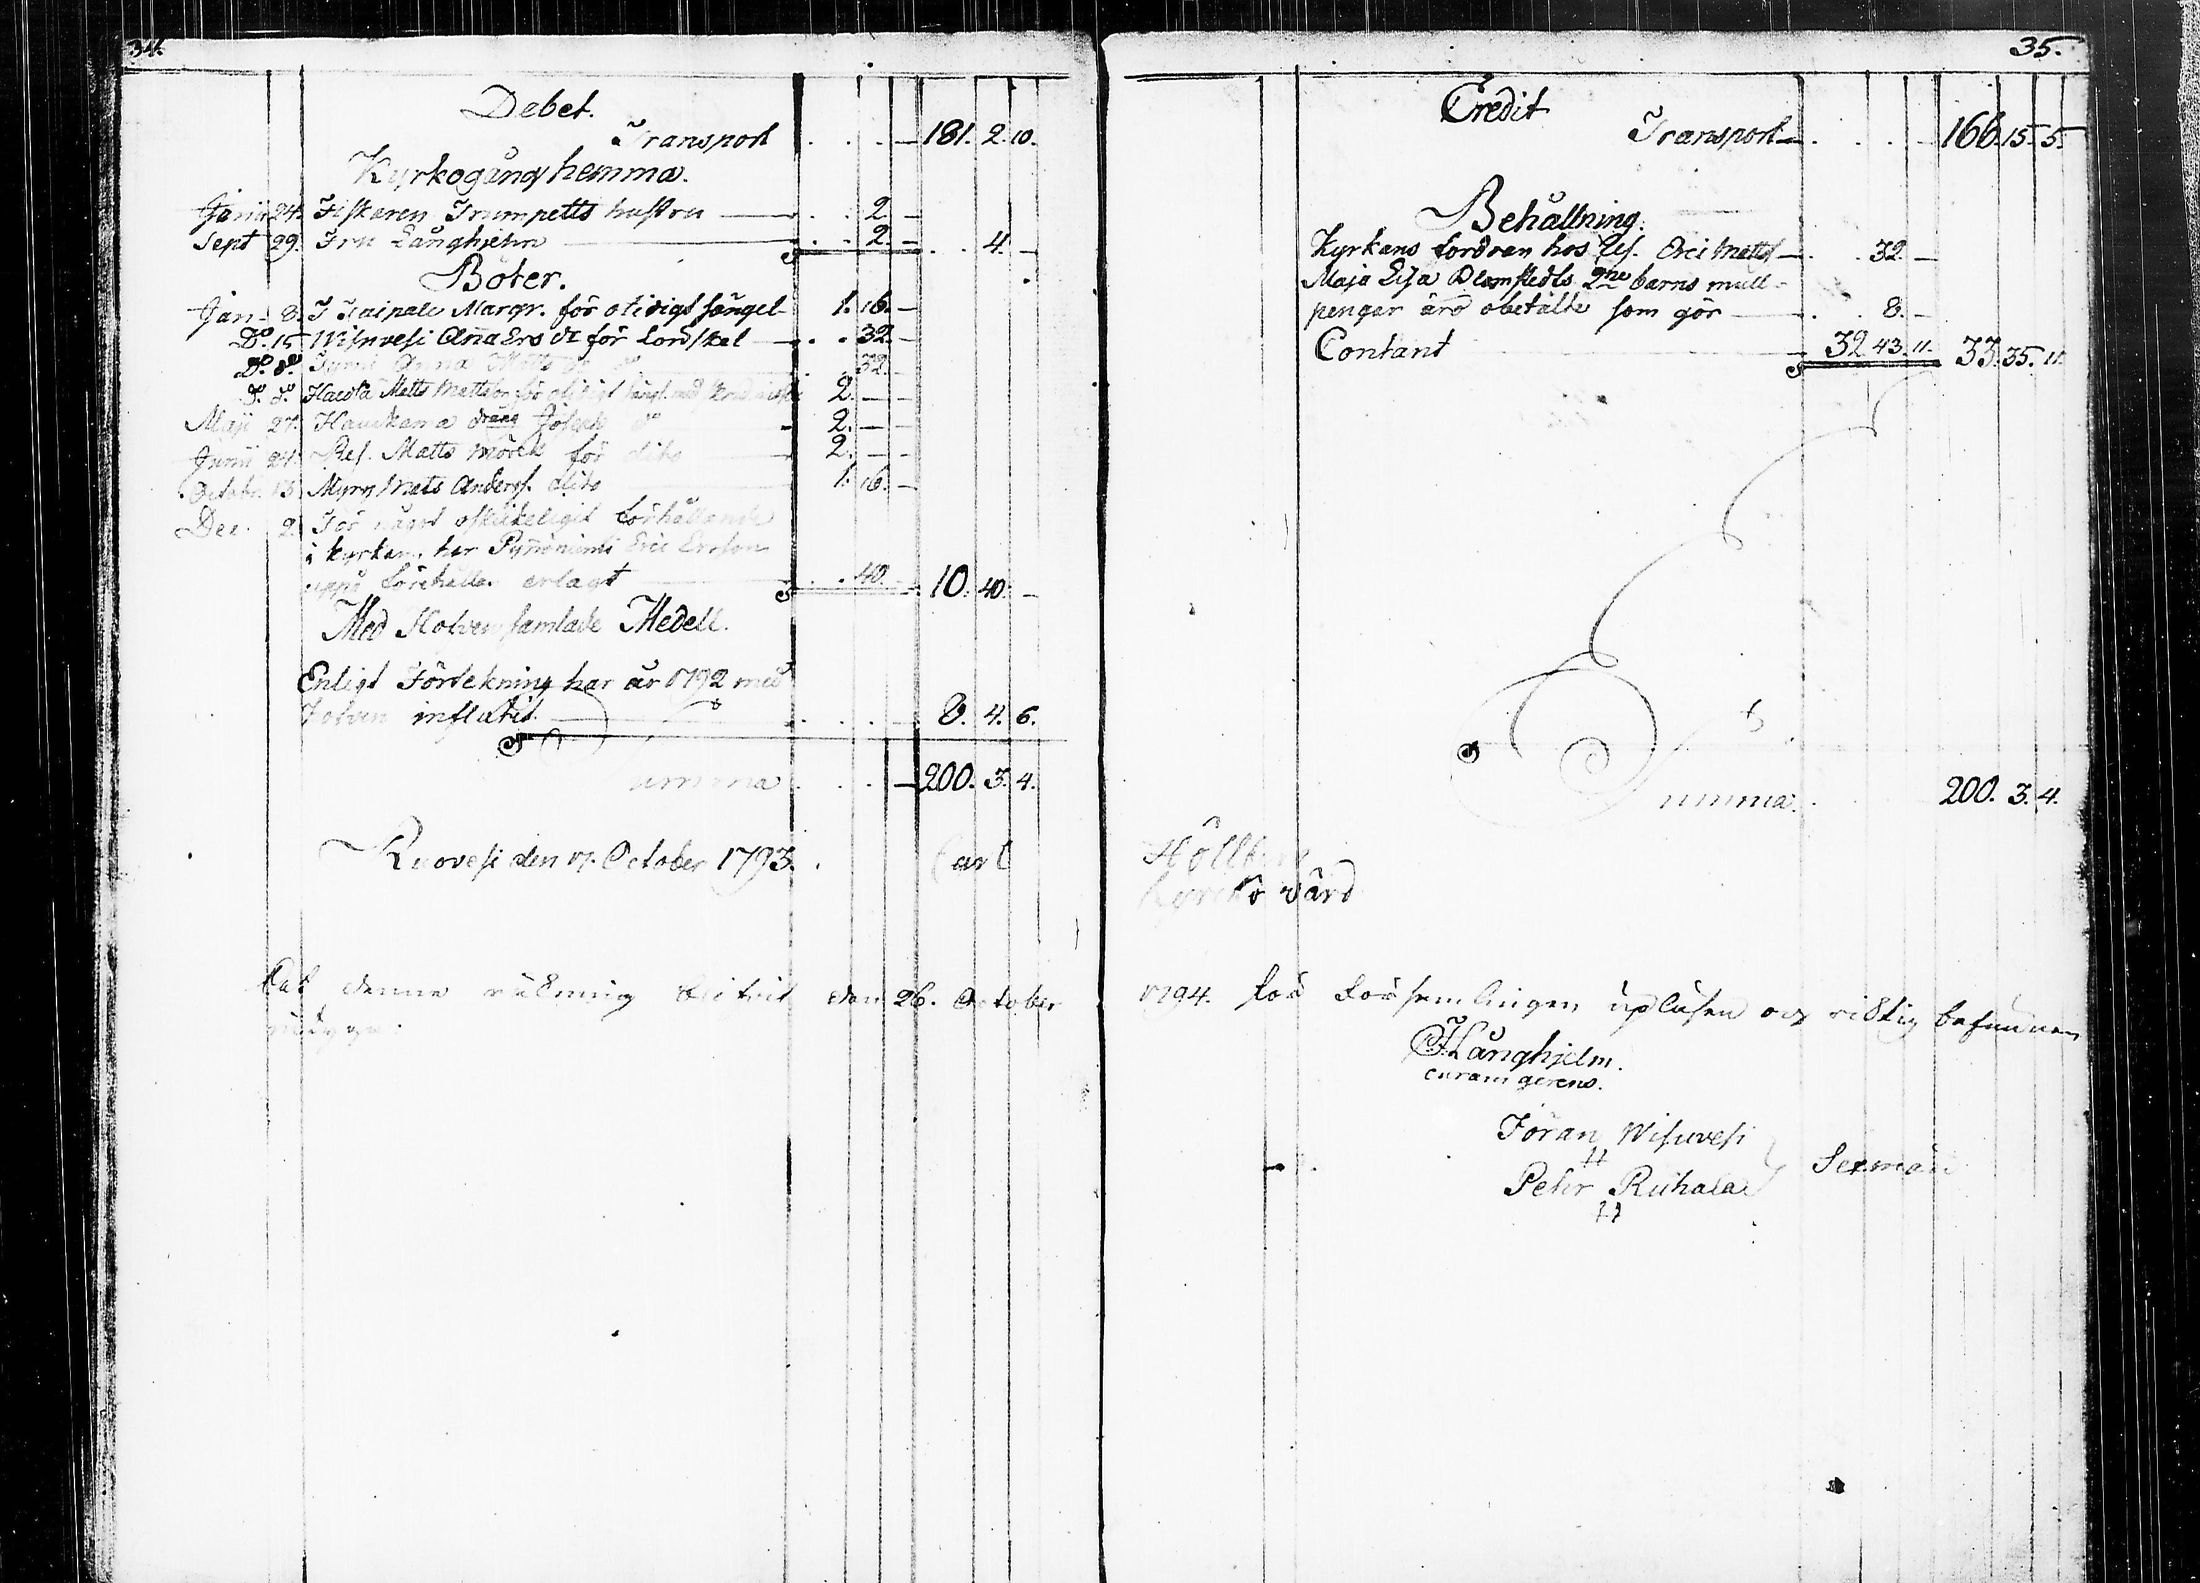 34.
Debet.
Transport 181. 2. 10.
Kyrkogång hemma.
Junii 24. Fiskaren Trumpetts hustru 2. –
Sept 29. Fru Långhjelm 2. – 4. –
Böter.
Jan. 8. Taipale Margr. för otidigt sängel. 1. 16. –
Do. 15 Wisuvesi Anna Ersdr för lönskal 32. –
Do. do. Anna Matts dr do 32. –
Matts Mattson för otidigt 2. – –
Maji 27. Haukana dräng Joseph do 2. – –
Junii 24. Ref. Matts Mörck för dito 2. – –
Octobr. 13. Myry Mats Anders. dito 1. 16. –
Dec. 2. För något oskickeligit förhållande
i kyrkan, har Eric Ersson
erlagt 40. – 10. 40. –
Med Hofven samlade Medell.
Enligt Förtekning har år 1792 med
Hofven influtit. 8. 4. 6.
umma 200. 3. 4.
Ruovesi den 17. October 1793. Carl
denne räkning den 26. October
35.
Credit
Transport 166. 15. 5.
Behållning.
Kyrkans fordran hos Erici Matts 32. –
Maja Lisa Blomstedts 2ne barns mull-
pengar äro obetalte som gör 8. –
Contant 32. 43. 11. 33. 35. 11.
umma 200. 3. 4.
Kyrcko värd
1794. för församlingen upläsen och riktig befunnen
Långhjelm.
curam gerens.
Jöran Wisuvesi
Pehr Riihala
Sexmän